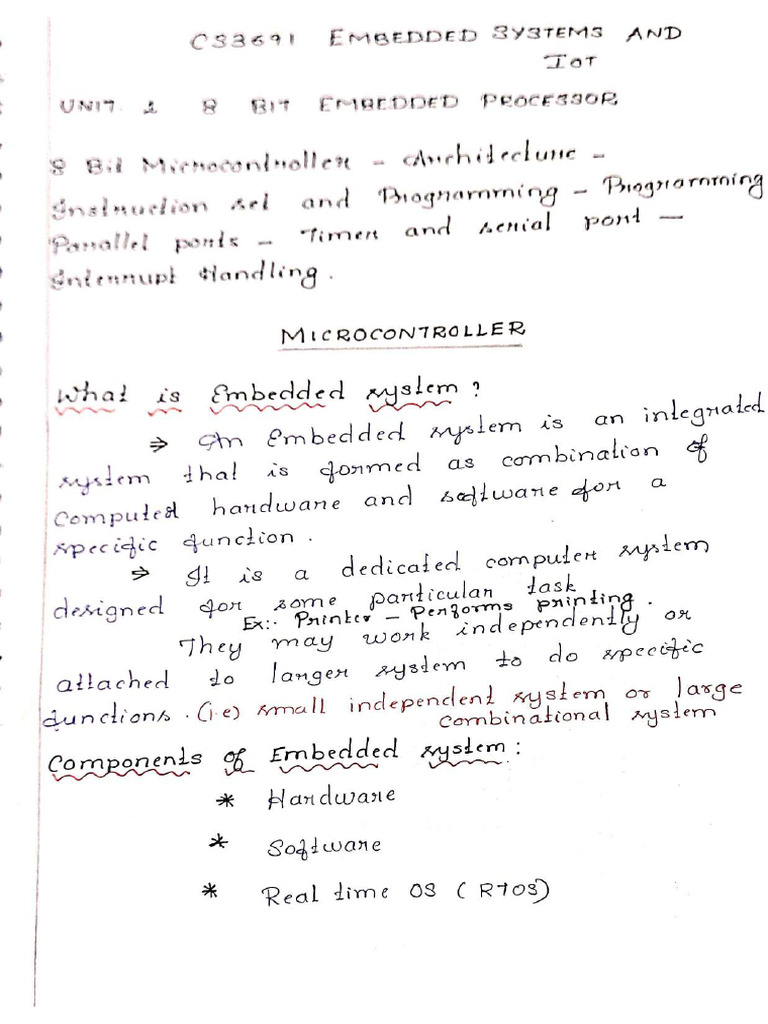 CS3691 EMBEDDED SYSTEMS AND
IOT
UNIT 1 8 BIT EMBEDDED PROCESSOR
8 Bit Microcontroller - Architecture -
Instruction set and Programming - Programming
Parallel ports - Timer and serial port -
Interrupt Handling.
MICROCONTROLLER
What is Embedded system?
⇒ An Embedded system is an integrated
system that is formed as combination of
computer hardware and software for a
specific function.
⇒ It is a dedicated computer system
designed for some particular task
Ex:- Printer - Performs printing.
They may work independently or
attached to larger system to do specific
functions. (i.e) small independent system or large
combinational system
Components of Embedded system:
* Hardware
* Software
* Real time OS (RTOS)